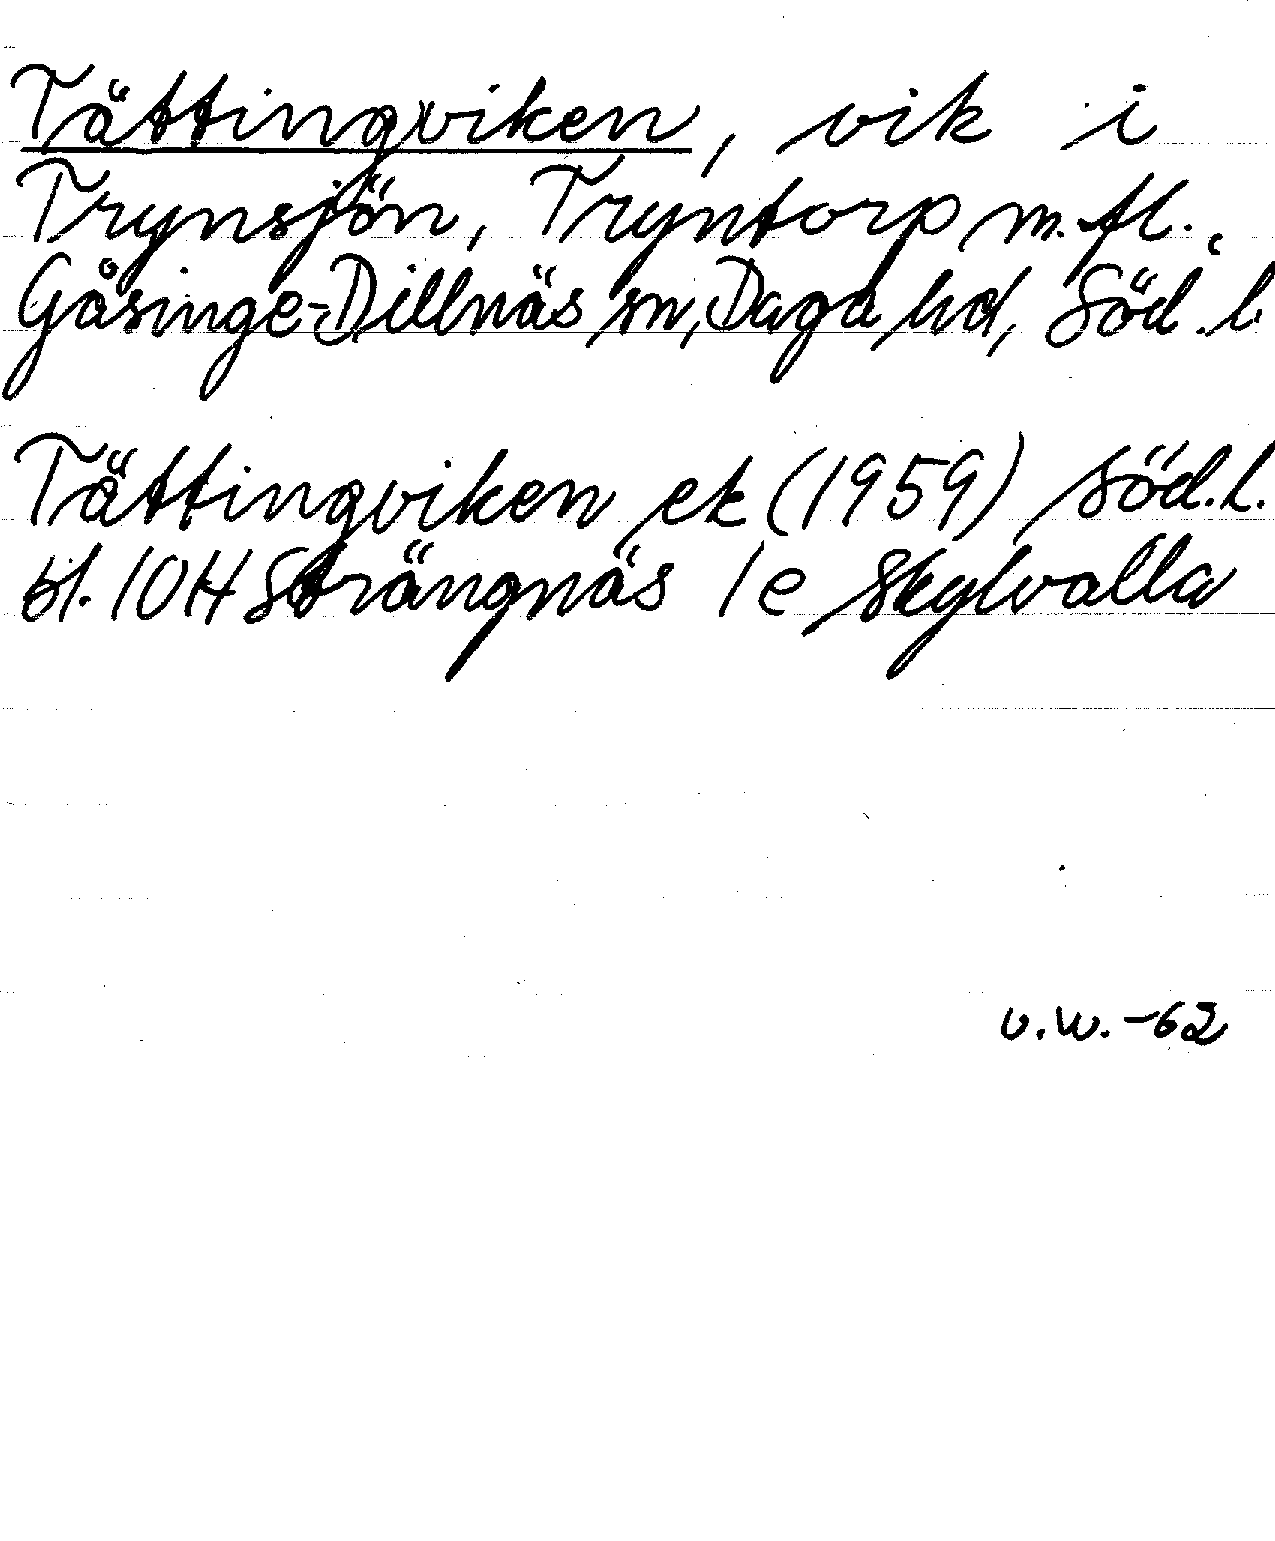 Tättingviken, vik i
Trynsjön, Tryntorp m.fl.,
Gåsinge-Dillnäs sn, Daga hd, Söd. l.
Tättingviken ek (1959) Söd.l.
bl. 10H Strängnäs 1e Skylvalla
v.w. -62